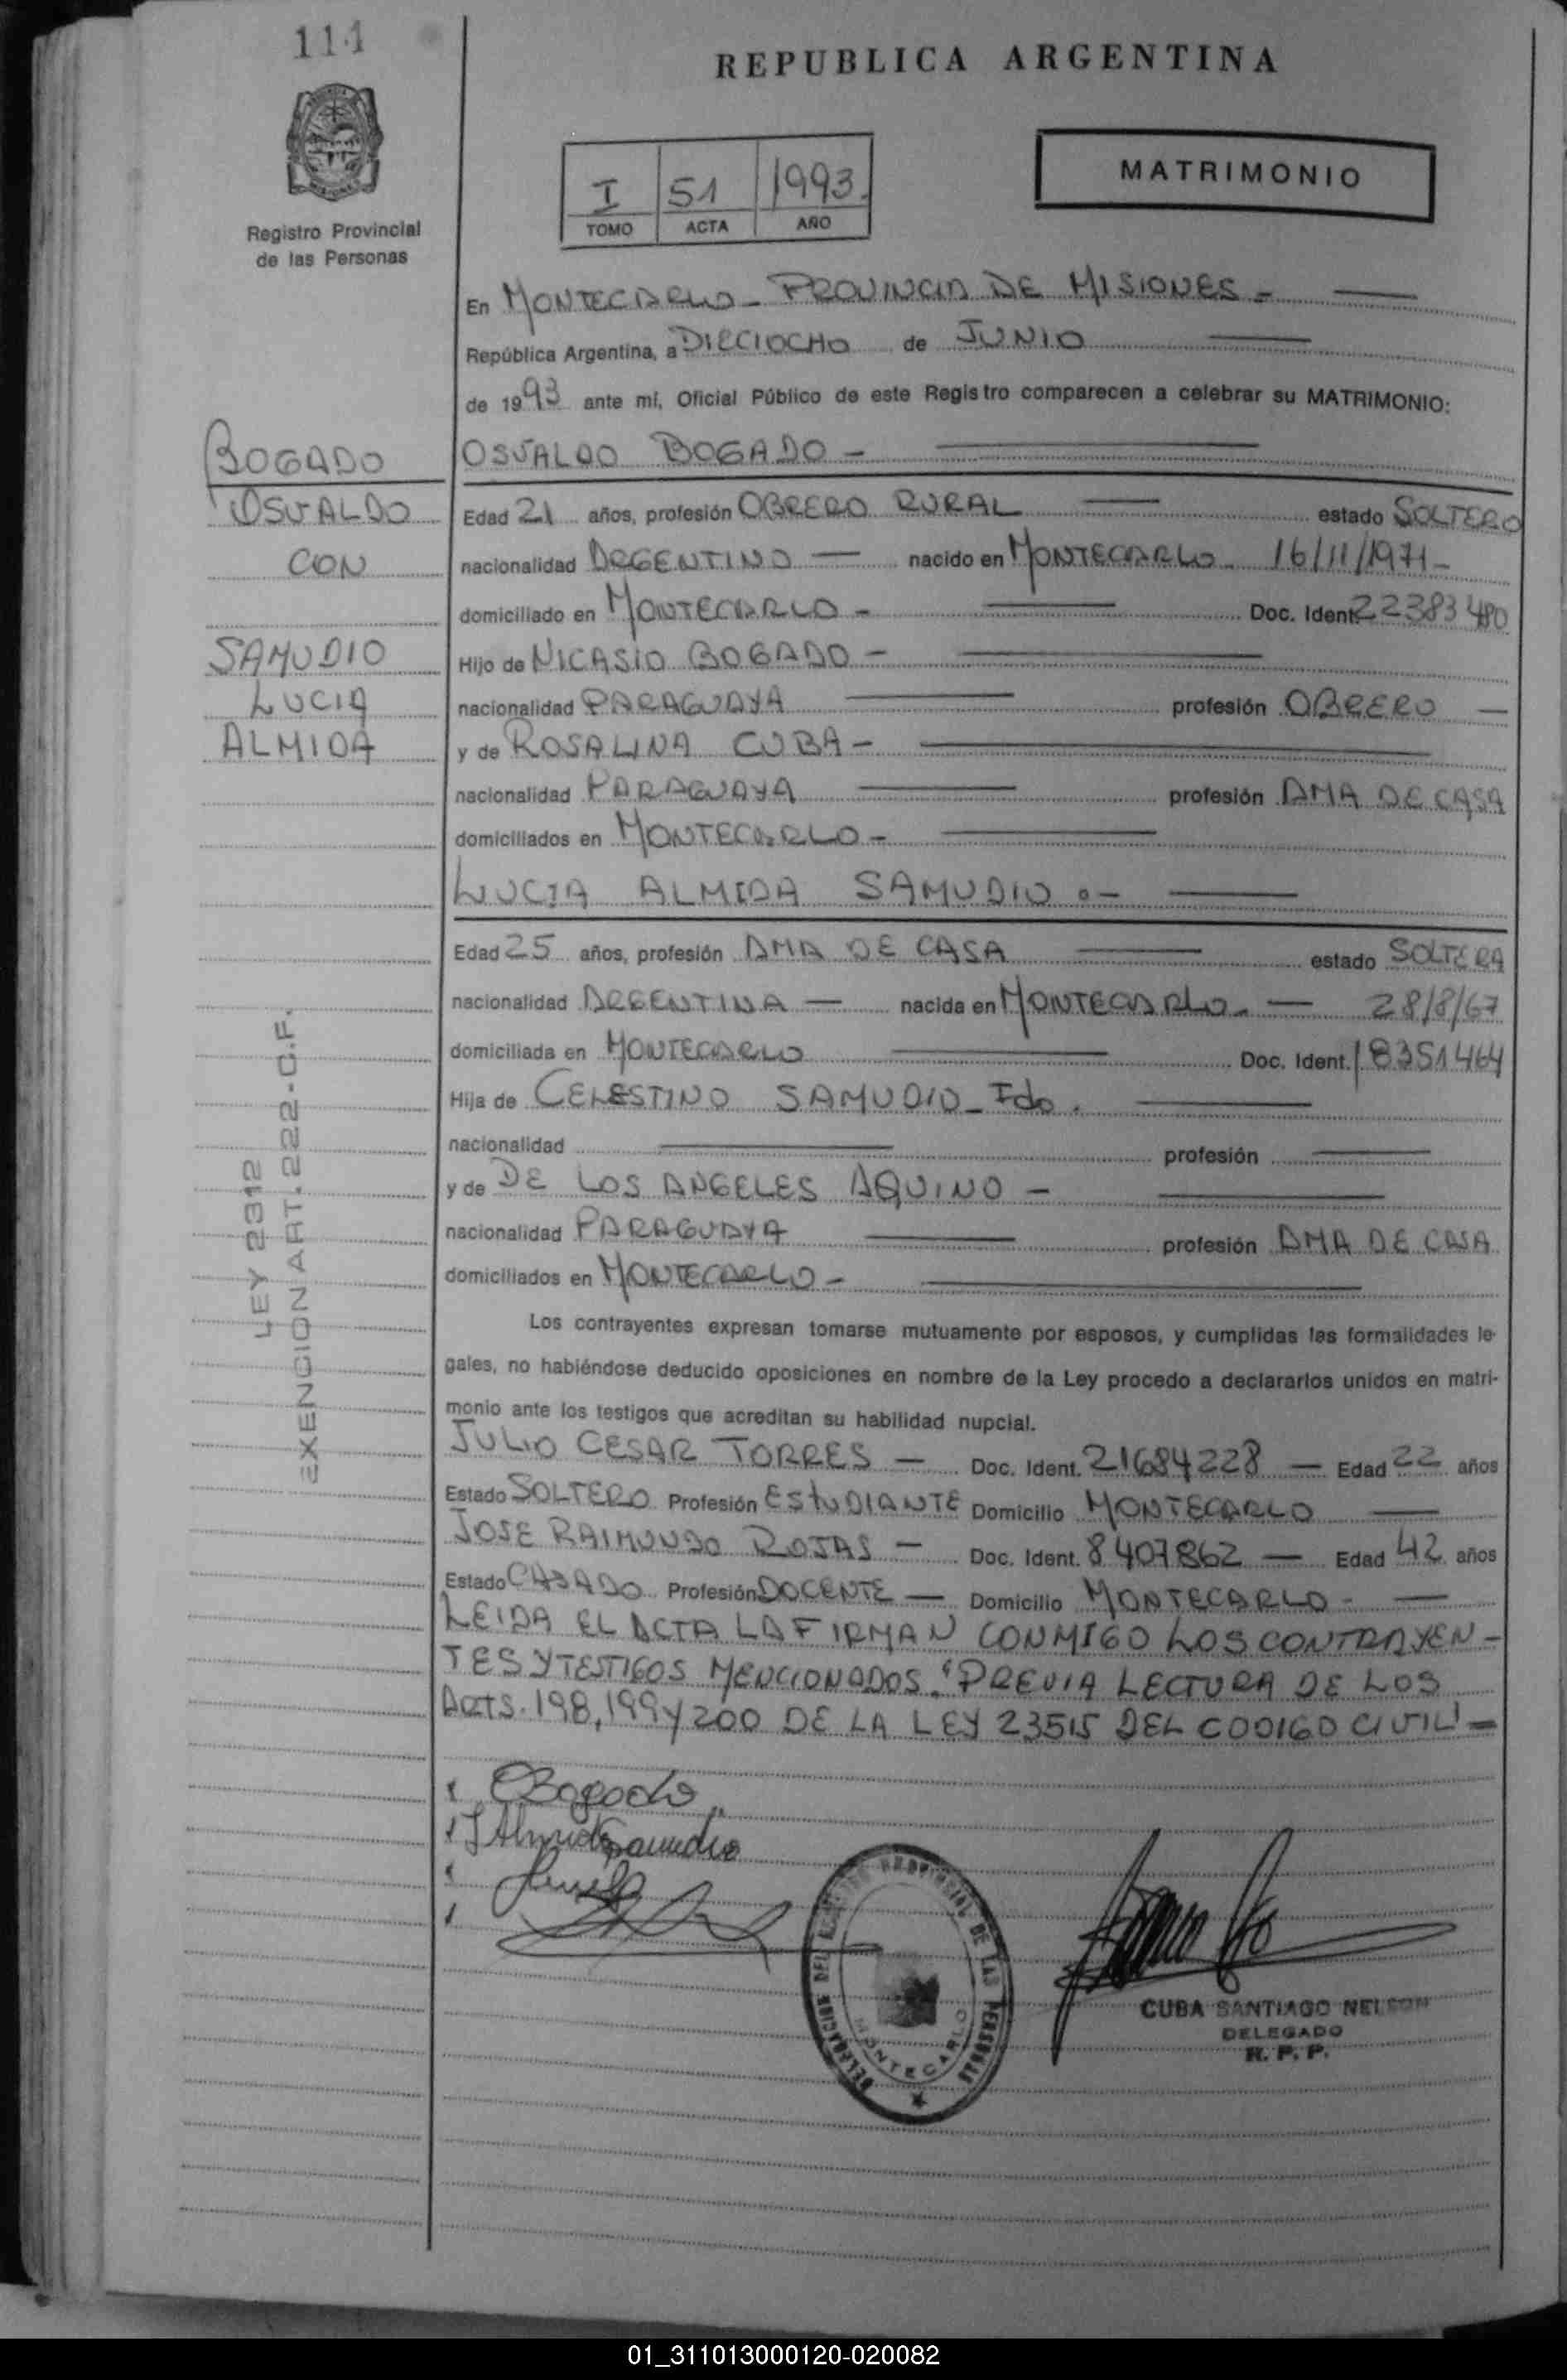 111
REPUBLICA ARGENTINA
Registro Provincial
de las Personas
I 51 1993.
TOMO ACTA AÑO
MATRIMONIO
En MONTECARLO - PROVINCIA DE MISIONES -
República Argentina, a DIECIOCHO de JUNIO
de 1993 ante mí, Oficial Público de este Registro comparecen a celebrar su MATRIMONIO:
BOGADO
OSVALDO
CON
SAMUDIO
LUCIA
ALMIDA
OSVALDO BOGADO -
Edad 21 años, profesión OBRERO RURAL estado SOLTERO
nacionalidad ARGENTINO — nacido en MONTECARLO - 16/11/1971 -
domiciliado en MONTECARLO - Doc. Ident. 22383480
Hijo de NICASIO BOGADO -
nacionalidad PARAGUAYA profesión OBRERO —
y de ROSALINA CUBA -
nacionalidad PARAGUAYA profesión AMA DE CASA
domiciliados en MONTECARLO -
LUCIA ALMIDA SAMUDIO .-
Edad 25 años, profesión AMA DE CASA estado SOLTERA
nacionalidad ARGENTINA — nacida en MONTECARLO. — 28/8/67
domiciliada en MONTECARLO Doc. Ident. 18351464
Hija de CELESTINO SAMUDIO - Fdo.
nacionalidad — profesión —
y de DE LOS ANGELES AQUINO -
nacionalidad PARAGUAYA profesión AMA DE CASA
domiciliados en MONTECARLO -
LEY 2312
EXENCION ART. 222-C.F.
Los contrayentes expresan tomarse mutuamente por esposos, y cumplidas las formalidades le-
gales, no habiéndose deducido oposiciones en nombre de la Ley procedo a declararlos unidos en matri-
monio ante los testigos que acreditan su habilidad nupcial.
JULIO CESAR TORRES — Doc. Ident. 21684228 — Edad 22 años
Estado SOLTERO Profesión ESTUDIANTE Domicilio MONTECARLO —
JOSE RAIMUNDO ROJAS — Doc. Ident. 8407862 — Edad 42 años
Estado CASADO Profesión DOCENTE — Domicilio MONTECARLO - —
LEIDA EL ACTA LA FIRMAN CONMIGO LOS CONTRAYEN-
TES Y TESTIGOS MENCIONADOS. "PREVIA LECTURA DE LOS
ARTS. 198, 199 Y 200 DE LA LEY 23515 DEL CODIGO CIVIL" -
OBogado
LAlmida Samudio
DELEGACION DEL REGISTRO PROVINCIAL DE LAS PERSONAS
MONTECARLO
CUBA SANTIAGO NELSON
DELEGADO
R. P. P.
01_311013000120-020082